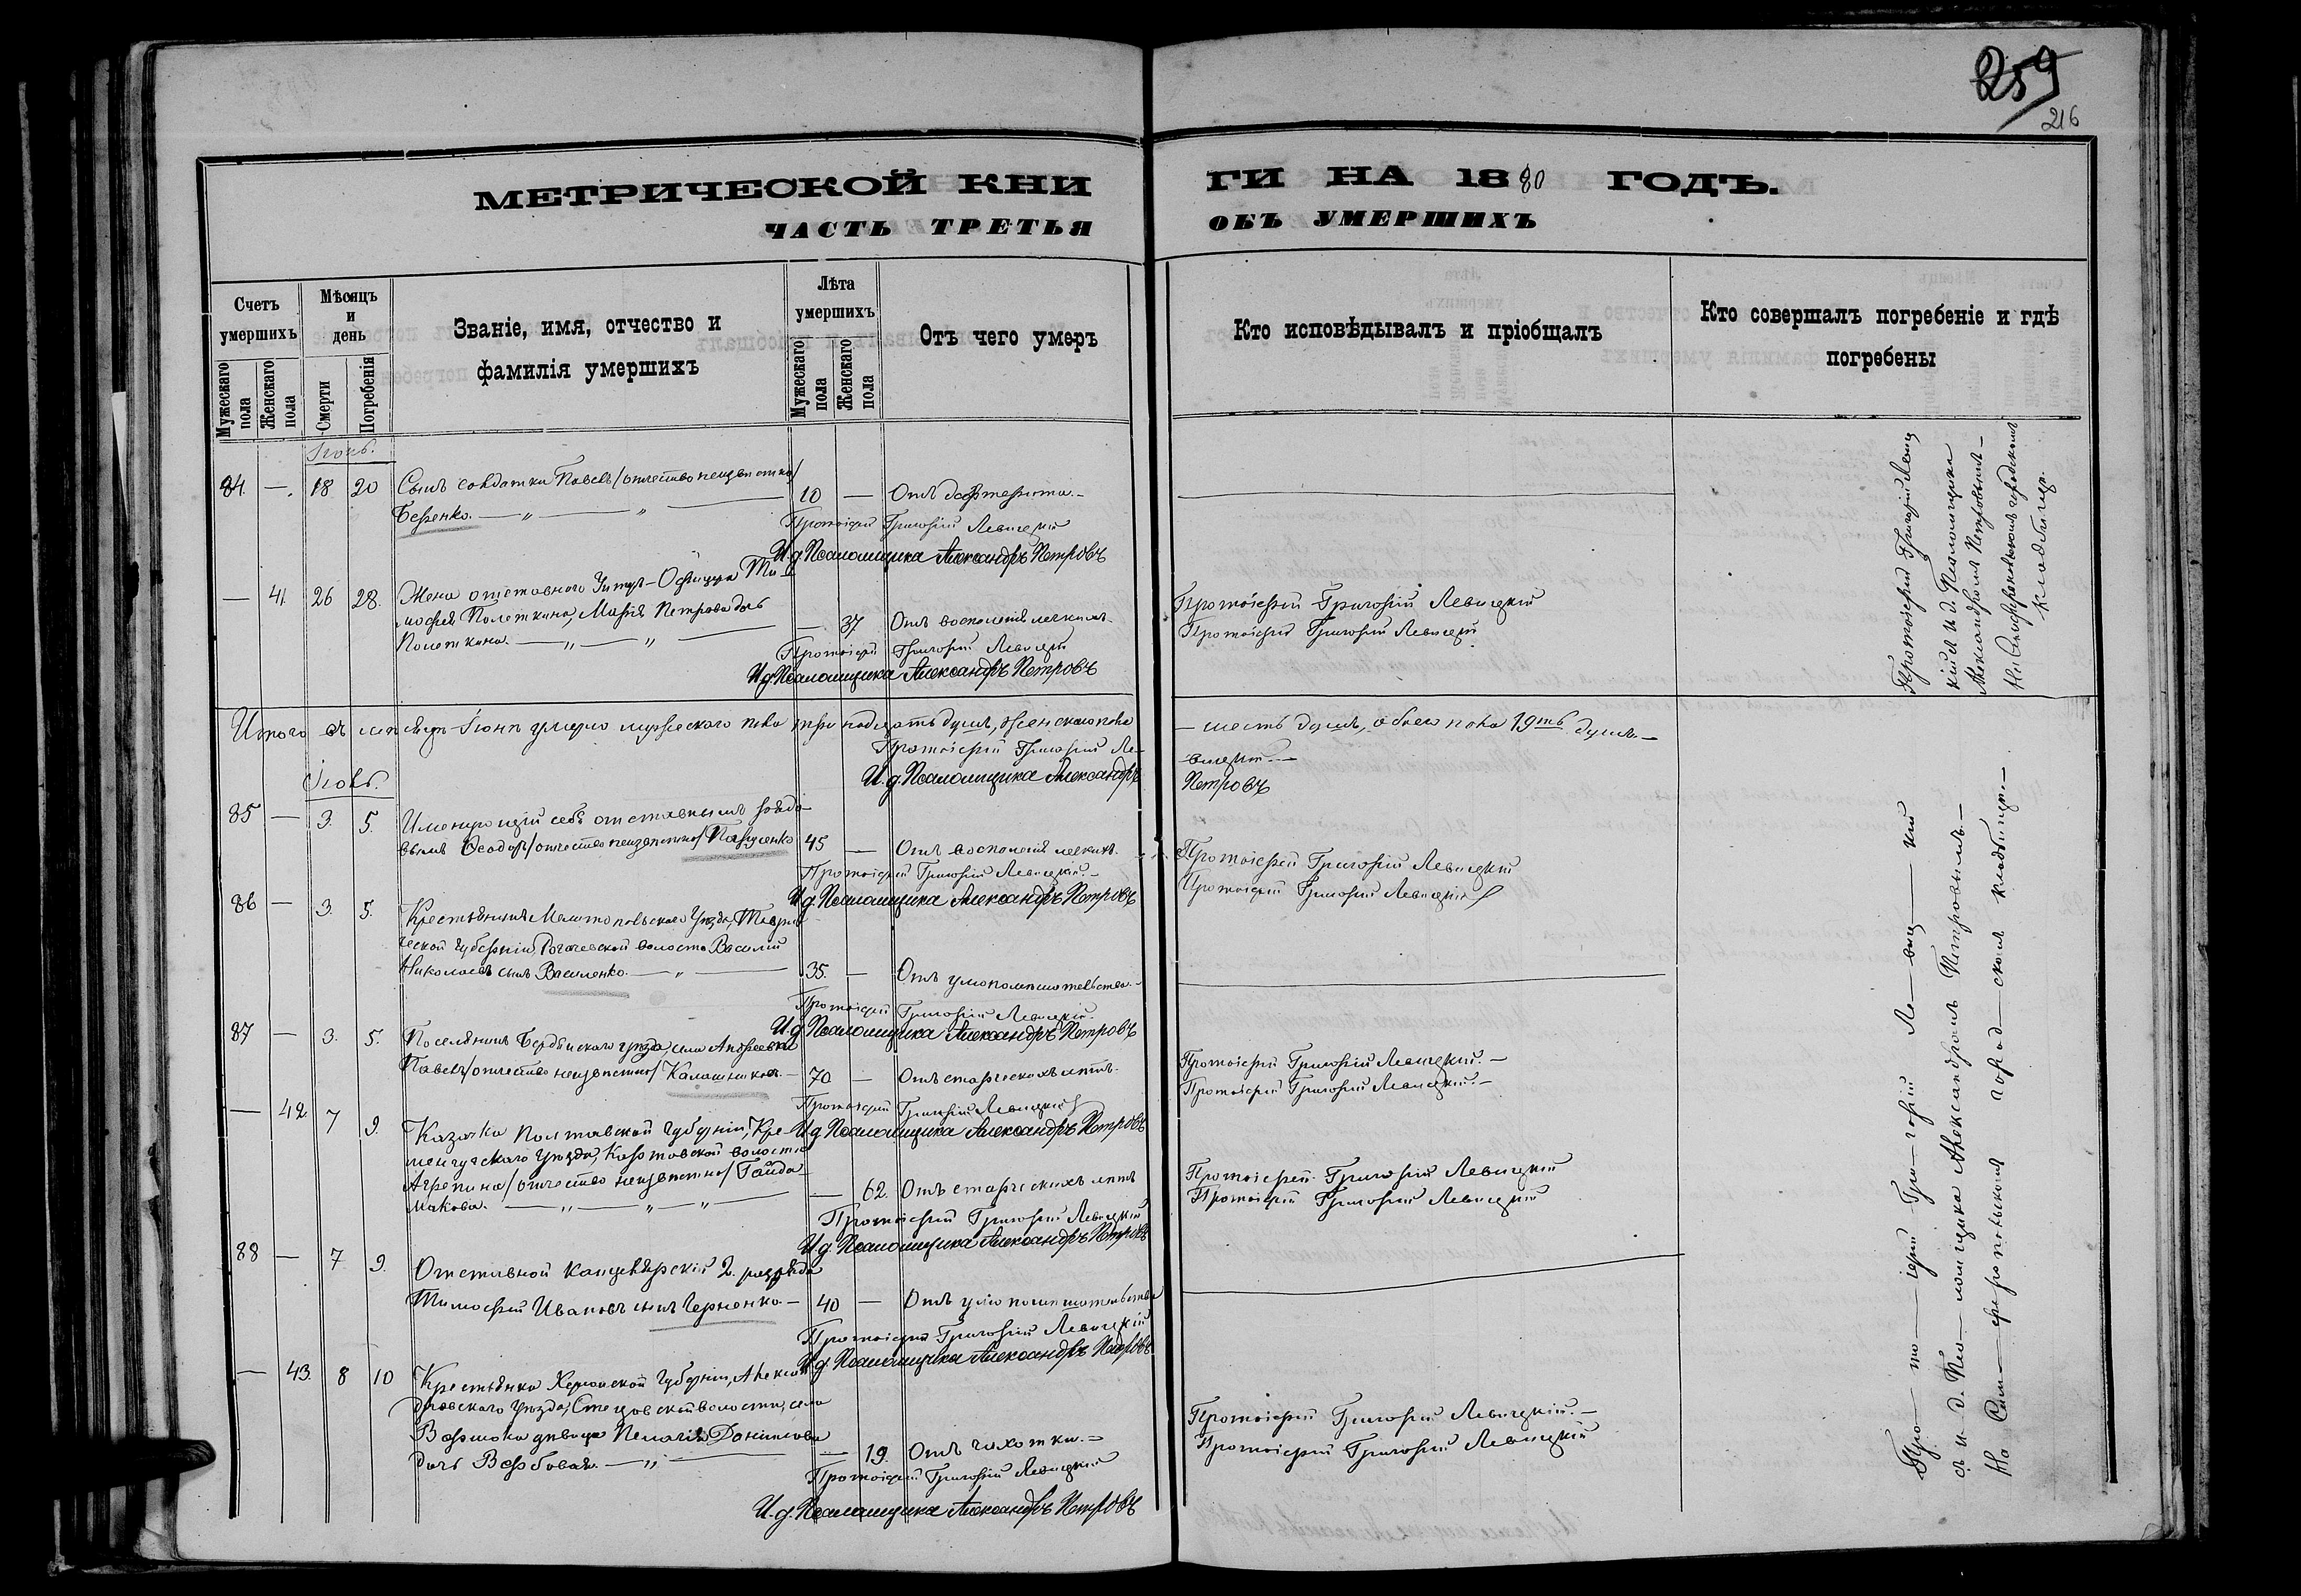 259
216
МЕТРИЧЕСКОЙ КНИ
ГИ НА 1880 ГОДЪ.
ЧАСТЬ ТРЕТЬЯ
ОБЪ УМЕРШИХЪ
Счетъ умершихъ
Мужескаго пола
Женскаго пола
Мѣсяцъ и день
Смерти
Погребенія
Званіе, имя, отчество и
фамилія умершихъ
Лѣта умершихъ
Мужескаго пола
Женскаго пола
Отъ чего умеръ
Кто исповѣдывалъ и пріобщалъ
Кто совершалъ погребеніе и гдѣ
погребены
Іюнь.
84. — 18 20 Сынъ солдатки Павелъ /отчество неизвѣстно/
10 — Отъ дифтерита.
Протоіерей Григорій Левицкій
И. д. Псаломщика Александръ Петровъ
— 41. 26 28. Жена отставного Унтеръ-Офицера Ти-
мофея Полеткина, Марія Петрова дочь
Полеткина. — 37. Отъ воспаленія легкихъ.
Протоіерей Григорій Левицкій
И. д. Псаломщика Александръ Петровъ
Протоіерей Григорій Левицкій
Протоіерей Григорій Левицкій
Протоіерей Григорій Левиц
кій и И. д. Псаломщика
Александромъ Петровымъ.
На Симферопольскомъ городскомъ
кладбищѣ.
Итого въ мѣсяцѣ Іюнѣ умерло мужескаго пола тринадцать душъ, женскаго пола
— шесть душъ, обоего пола 19ть душъ.
Протоіерей Григорій Ле-
вицкій.
И. д. Псаломщика Александръ
Петровъ
Іюль.
85 — 3. 5. Именующій себя отставнымъ рядо-
вымъ Ѳеодоръ /отчество неизвѣстно/ 45 — Отъ воспаленія легкихъ.
Протоіерей Григорій Левицкій.
И. д. Псаломщика Александръ Петровъ
Протоіерей Григорій Левицкій
Протоіерей Григорій Левицкій
86 — 3. 5. Крестьянинъ Мелитопольскаго Уѣзда, Таври
ческой Губерніи, Рогачевской волости Василій
Николаевъ сынъ Василенко. 35. — Отъ умопомѣшательства.
Протоіерей Григорій Левицкій.
И. д. Псаломщика Александръ Петровъ
87 — 3. 5. Поселянинъ Бердянскаго уѣзда, села Андреевки
Павелъ /отчество неизвѣстно/ Калашниковъ. 70 — Отъ старческихъ лѣтъ.
Протоіерей Григорій Левицкій
И. д. Псаломщика Александръ Петровъ
Протоіерей Григорій Левицкій.
Протоіерей Григорій Левицкій.
— 42 7 9. Казачка Полтавской Губерніи, Кре-
менчугскаго Уѣзда, волости
Агрепина /отчество неизвѣстно/ Гайда-
макова. — 62. Отъ старческихъ лѣтъ
Протоіерей Григорій Левицкій
И. д. Псаломщика Александръ Петровъ
Протоіерей Григорій Левицкій
Протоіерей Григорій Левицкій
88 — 7 9. Отставной Канцелярскій 2. разряда
Тимофей Ивановъ сынъ Черненко. 40 — Отъ умопомѣшательства
Протоіерей Григорій Левицкій
И. д. Псаломщика Александръ Петровъ
— 43. 8 10 Крестьянка Херсонской Губерніи, Алексан
дровскаго Уѣзда, волости, села
дѣвица Пелагія Данилова
дочь Вербовая. — 19. Отъ чахотки.
Протоіерей Григорій Левицкій
И. д. Псаломщика Александръ Петровъ
Протоіерей Григорій Левицкій.
Протоіерей Григорій Левицкій
Про — то — іерей Гри — горій Ле — виц — кій
съ И. д. Пса — ломщика Александромъ Петровымъ.
На Сим — феропольскомъ город — скомъ кладбищѣ.